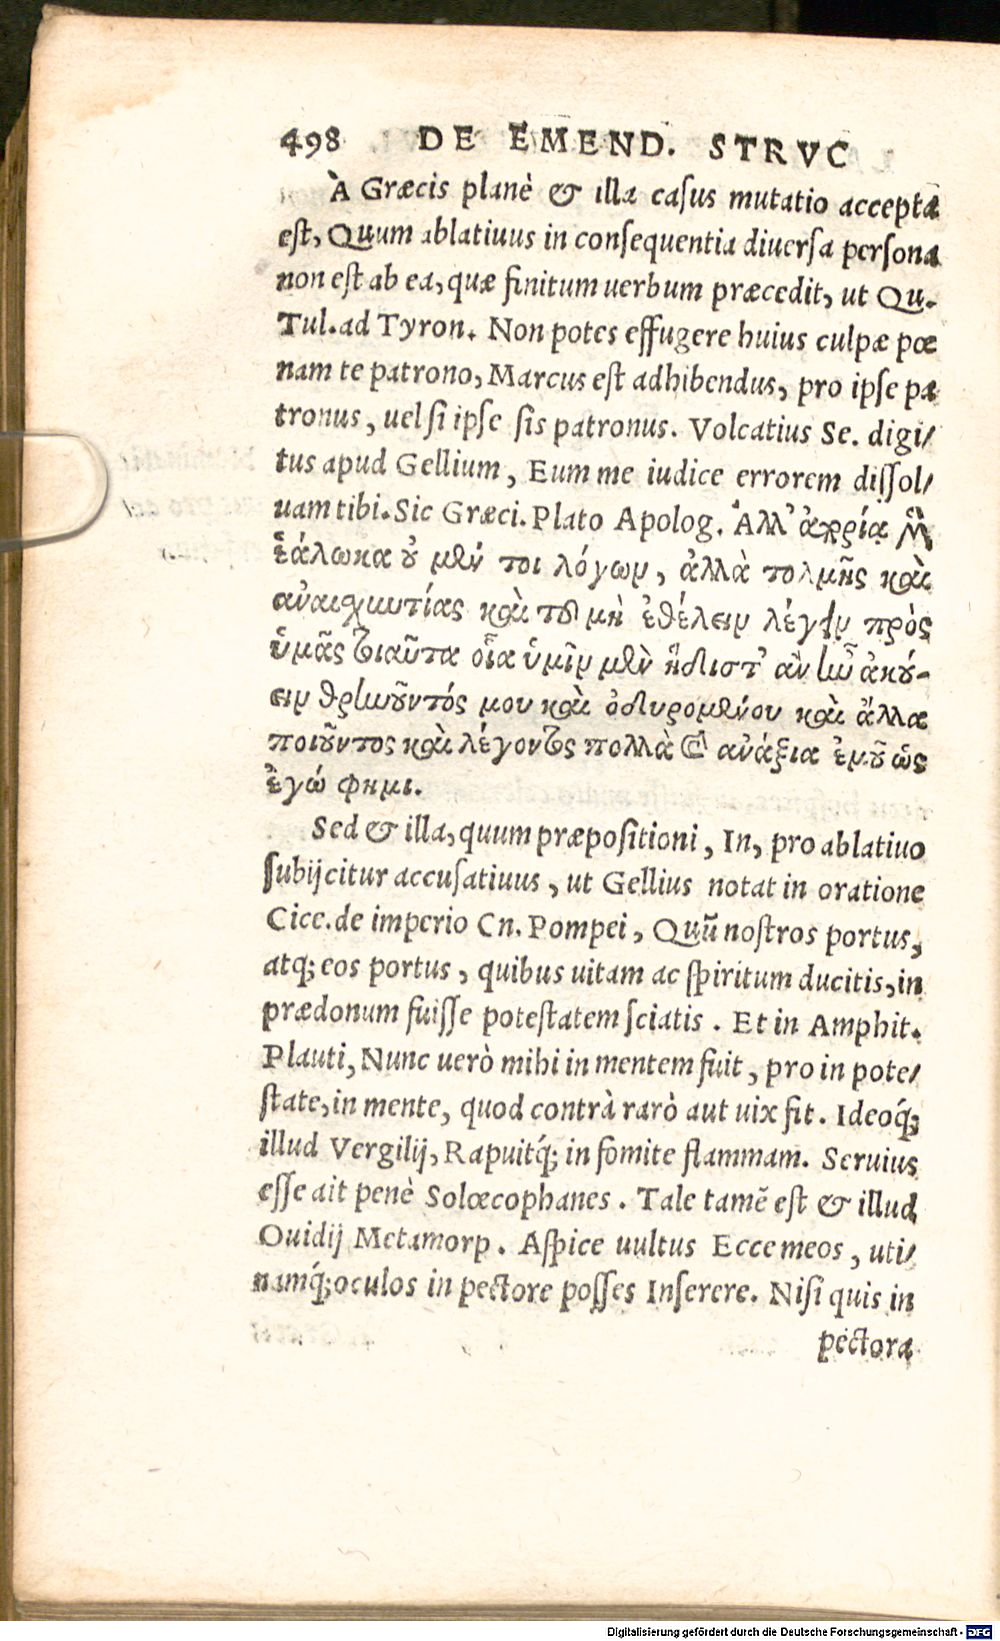 498 DE EMEND. STRVC
À Græcis planè & illa casus mutatio accepta
est, Quum ablatiuus in consequentia diuersa persona
non est ab ea, quæ finitum uerbum præcedit, ut Qu.
Tul. ad Tyron. Non potes effugere huius culpæ pœ
nam te patrono, Marcus est adhibendus, pro ipse pa
tronus, uel si ipse sis patronus. Volcatius Se. digi/
tus apud Gellium, Eum me iudice errorem dissol/
uam tibi. Sic Græci. Plato Apolog. Ἀλλ' ἀπορίᾳ μὲν
ἑάλωκα οὐ μέν τοι λόγων, ἀλλὰ τολμῆς καὶ
ἀναισχυντίας καὶ τοῦ μὴ ἐθέλειν λέγειν πρὸς
ὑμᾶς τοιαῦτα οἷα ὑμῖν μὲν ἥδιστ' ἂν ἦν ἀκού-
ειν θρηνοῦντός μου καὶ ὀδυρομένου καὶ ἄλλα
ποιοῦντος καὶ λέγοντος πολλὰ καὶ ἀνάξια ἐμοῦ ὥς
ἐγώ φημι.
Sed & illa, quum præpositioni, In, pro ablatiuo
subijcitur accusatiuus, ut Gellius notat in oratione
Cice. de imperio Cn. Pompei, Quũ nostros portus,
atq; eos portus, quibus uitam ac spiritum ducitis, in
prædonum fuisse potestatem sciatis. Et in Amphit.
Plauti, Nunc uerò mihi in mentem fuit, pro in pote/
state, in mente, quod contrà rarò aut uix fit. Ideoq́;
illud Vergilij, Rapuitq́; in fomite flammam. Seruius
esse ait penè Solœcophanes. Tale tamẽ est & illud
Ouidij Metamorp. Aspice uultus Ecce meos, uti/
namq́; oculos in pectore posses Inserere. Nisi quis in
pectora
Digitalisierung gefördert durch die Deutsche Forschungsgemeinschaft - DFG